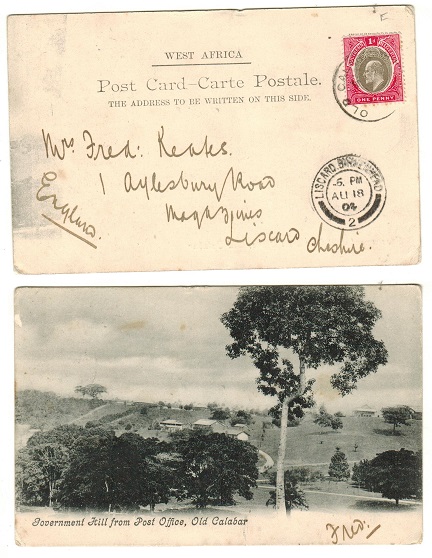 WEST AFRICA
Post Card–Carte Postale.
THE ADDRESS TO BE WRITTEN ON THIS SIDE.
1d
ONE PENNY
OLD CA
Mrs Fred: Keates.
1 Aylesbury Road
Magazines
Liscard
Cheshire.
England.
LISCARD BIRKENHEAD
5. PM
AU 18
04
2
Government Hill from Post Office, Old Calabar
Fred.